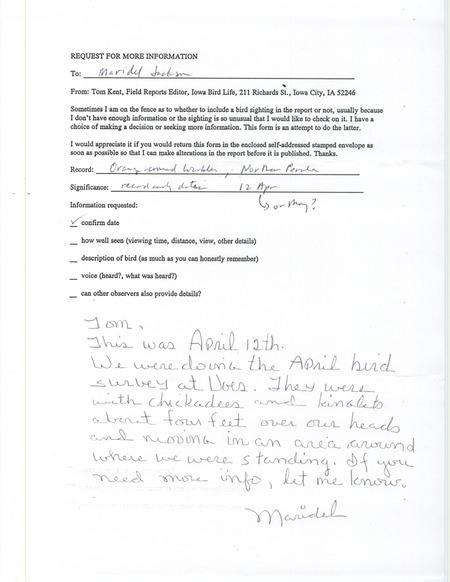 REQUEST FOR MORE INFORMATION
To: Maridel Jackson
From: Tom Kent, Field Reports Editor, Iowa Bird Life, 211 Richards St., Iowa City, IA 52246
Sometimes I am on the fence as to whether to include a bird sighting in the report or not, usually because
I don't have enough information or the sighting is so unusual that I would like to check on it. I have a
choice of making a decision or seeking more information. This form is an attempt to do the latter.
I would appreciate it if you would return this form in the enclosed self-addressed stamped envelope as
soon as possible so that I can make alterations in the report before it is published. Thanks.
Record: Orange-crowned Warbler, Northern Parula
Significance: record early dates 12 Apr
Information requested: or May?
✓ confirm date
__ how well seen (viewing time, distance, view, other details)
__ description of bird (as much as you can honestly remember)
__ voice (heard?, what was heard?)
__ can other observers also provide details?
Tom,
This was April 12th.
We were doing the April bird
survey at Does. They were
with chickadees and kinglets
about four feet over our heads
and moving in an area around
where we were standing. If you
need more info, let me know.
Maridel